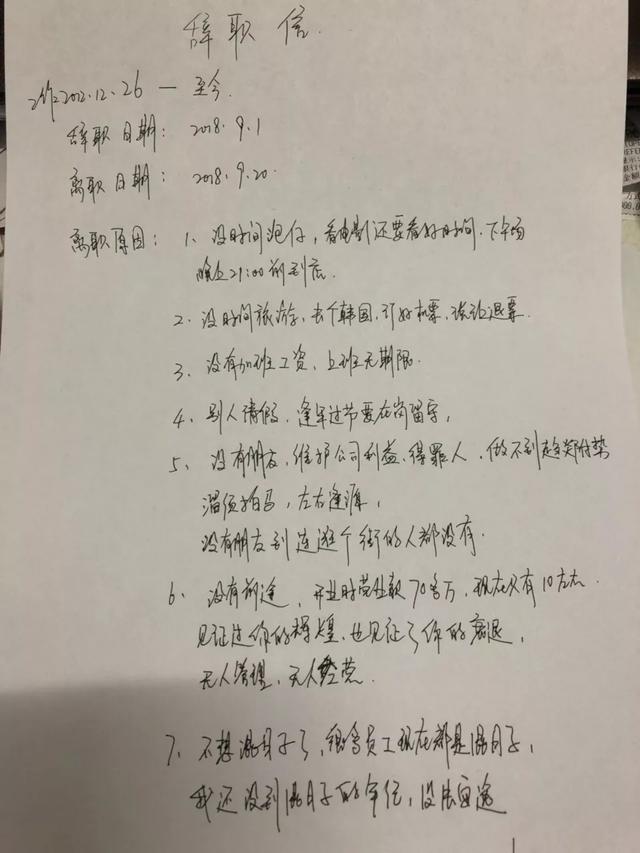 辞职信.
工作2012.12.26 — 至今.
辞职日期: 2018.9.1
离职日期: 2018.9.20.
离职原因: 1、没时间泡仔, 看电影还要看好时间.下午场
晚上21:00前到店.
2、没时间旅游, 去个韩国, 订好机票, 被迫退票.
3、没有加班工资, 上班无期限.
4、别人请假, 逢年过节要在岗留守,
5、没有朋友, 维护公司利益, 得罪人, 做不到趋炎附势
溜须拍马, 左右逢源,
没有朋友到连逛个街的人都没有.
6、没有前途, 开业时营业款70多万, 现在只有10左右.
见证过你的辉煌, 也见证了你的衰退,
无人管理, 无人经营.
7、不想混日子了, 很多员工现在都是混日子,
我还没到混日子的年纪, 没法